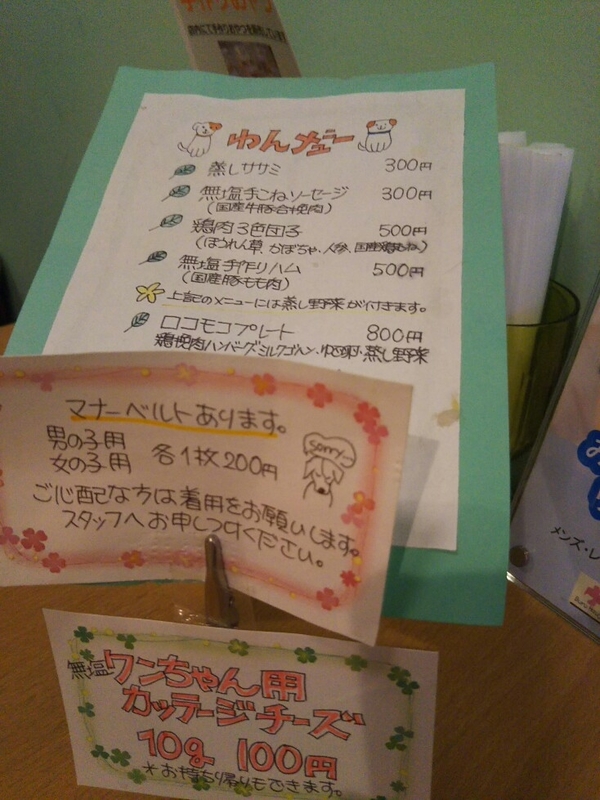 手作りおやつ
わんギュー
蒸しササミ 300円
無塩手こねソーセージ 300円
(国産牛豚合挽肉)
鶏肉3色団子 500円
(ほうれん草、かぼちゃ・人参、国産鶏むね)
無塩手作りハム 500円
(国産豚もも肉)
上記のメニューには蒸し野菜が付きます。
ロコモコプレート 800円
鶏挽肉ハンバーグ・ミルクゴハン・ゆで卵・蒸し野菜
マナーベルトあります。
男の子用
女の子用 各1枚200円
Sorry
ご心配な方は着用をお願いします。
スタッフへお申しつけください。
無塩ワンちゃん用
カッテージチーズ
10g 100円
*お持ち帰りもできます。
メンズ・レ